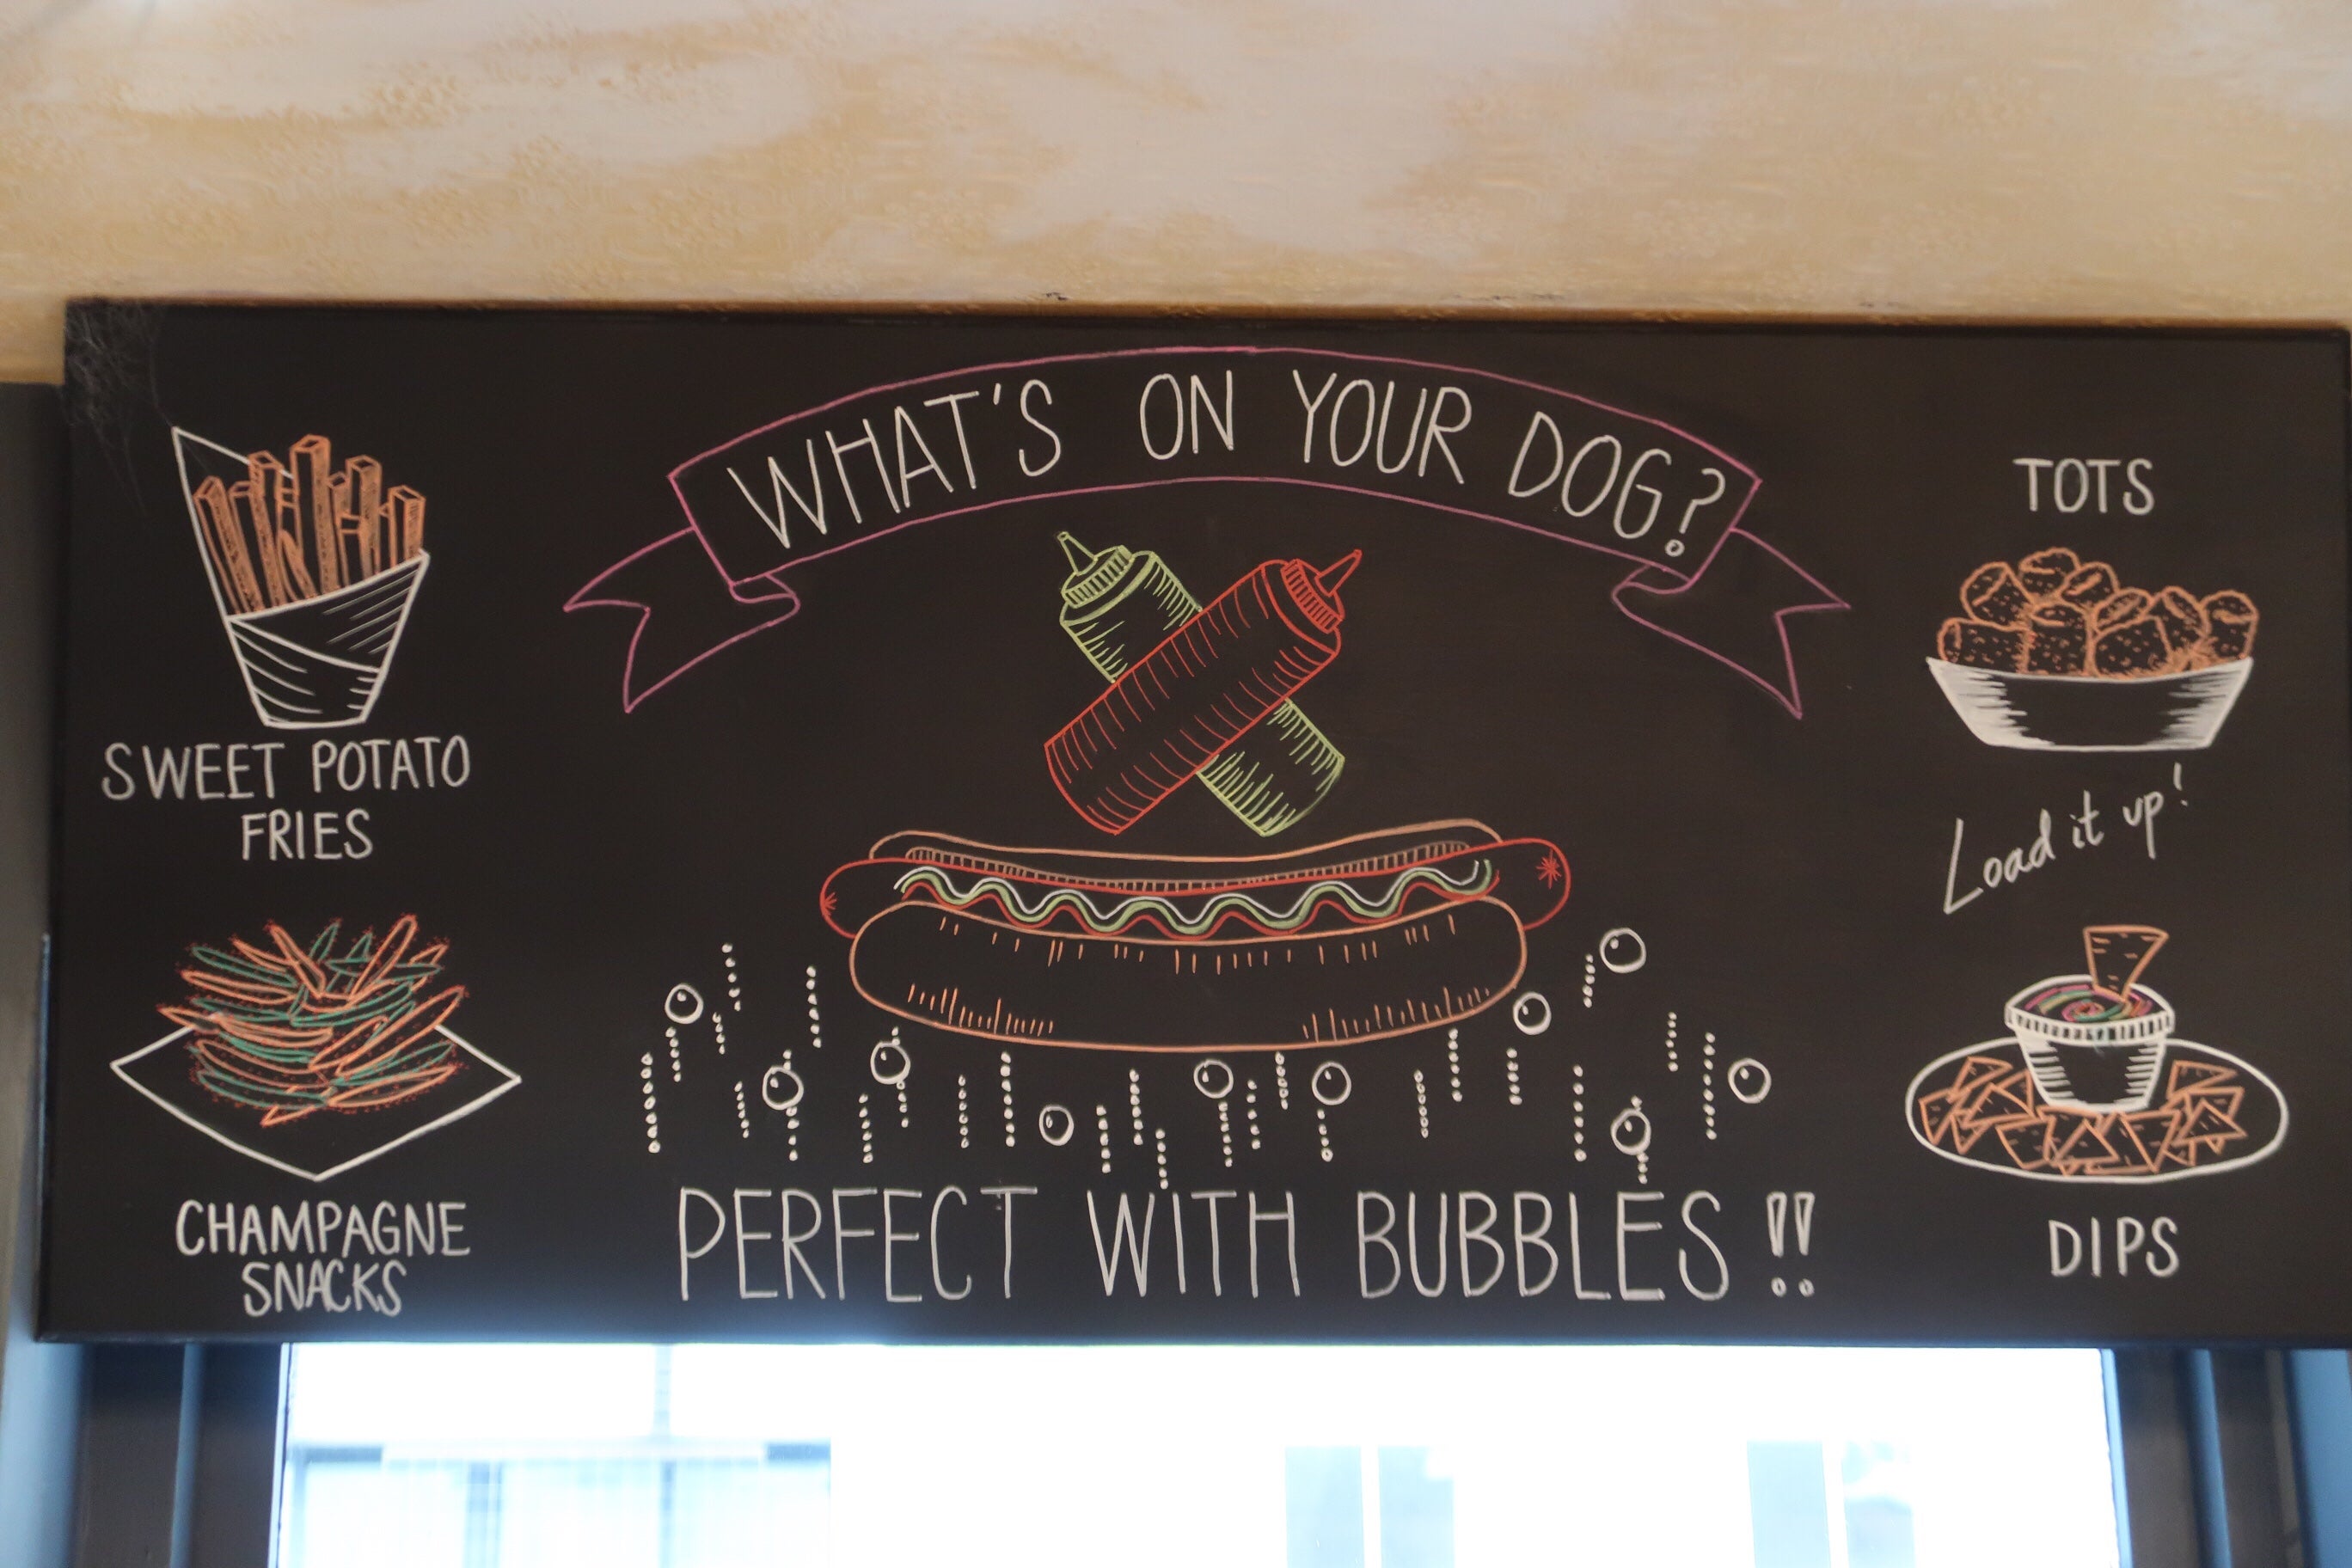 WHAT'S ON YOUR DOG?
SWEET POTATO
FRIES
CHAMPAGNE
SNACKS
PERFECT WITH BUBBLES!!
TOTS
Load it up!
DIPS